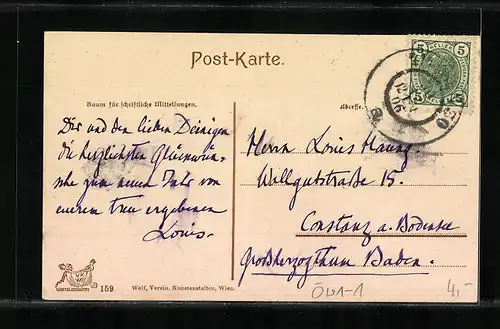 Post-Karte.
Raum für schriftliche Mitteilungen.
Adresse.
5 HELLER 5
Dir und den lieben Deinigen
die herzlichsten Glückwün-
sche zum neuen Jahr von
eurem treu ergebenen
Louis.
Herrn Louis
Wallgutstraße 15.
Constanz a. Bodensee
Großherzogthum Baden.
159
Wolf, Verein. Kunstanstalten, Wien.
4,-